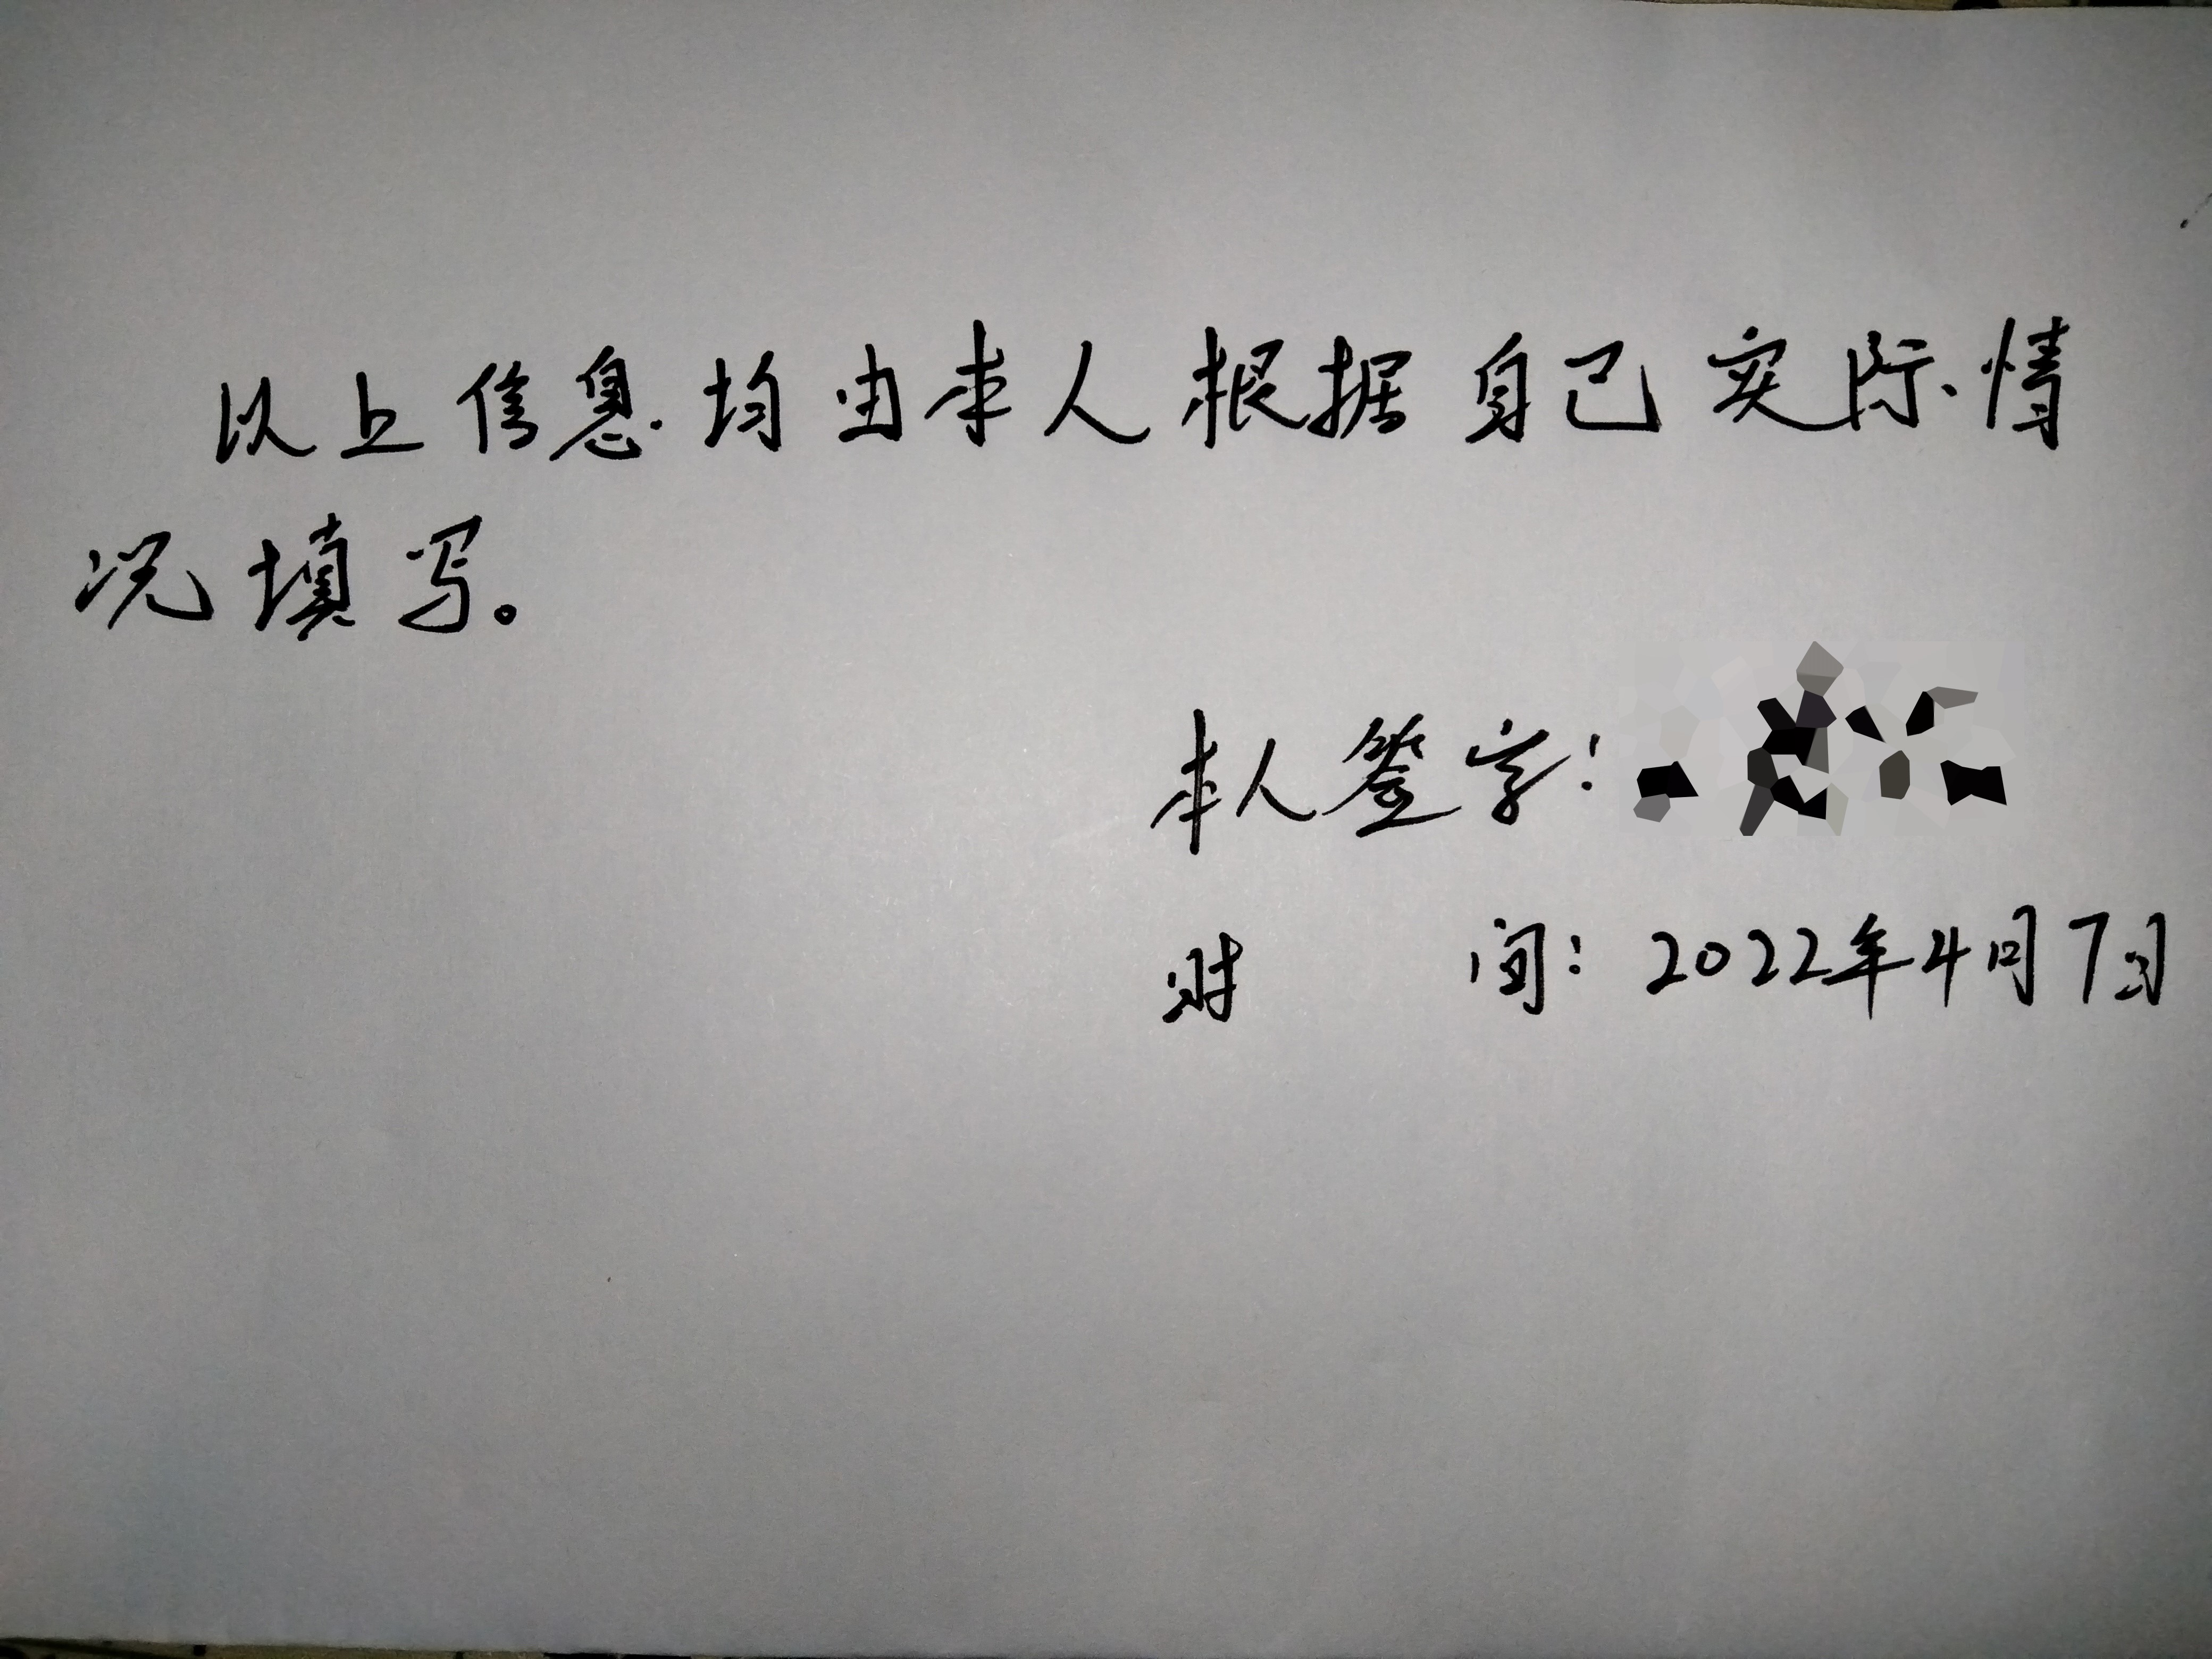 以上信息均由本人根据自己实际情
况填写。
本人签字：
时 间：2022年4月7日